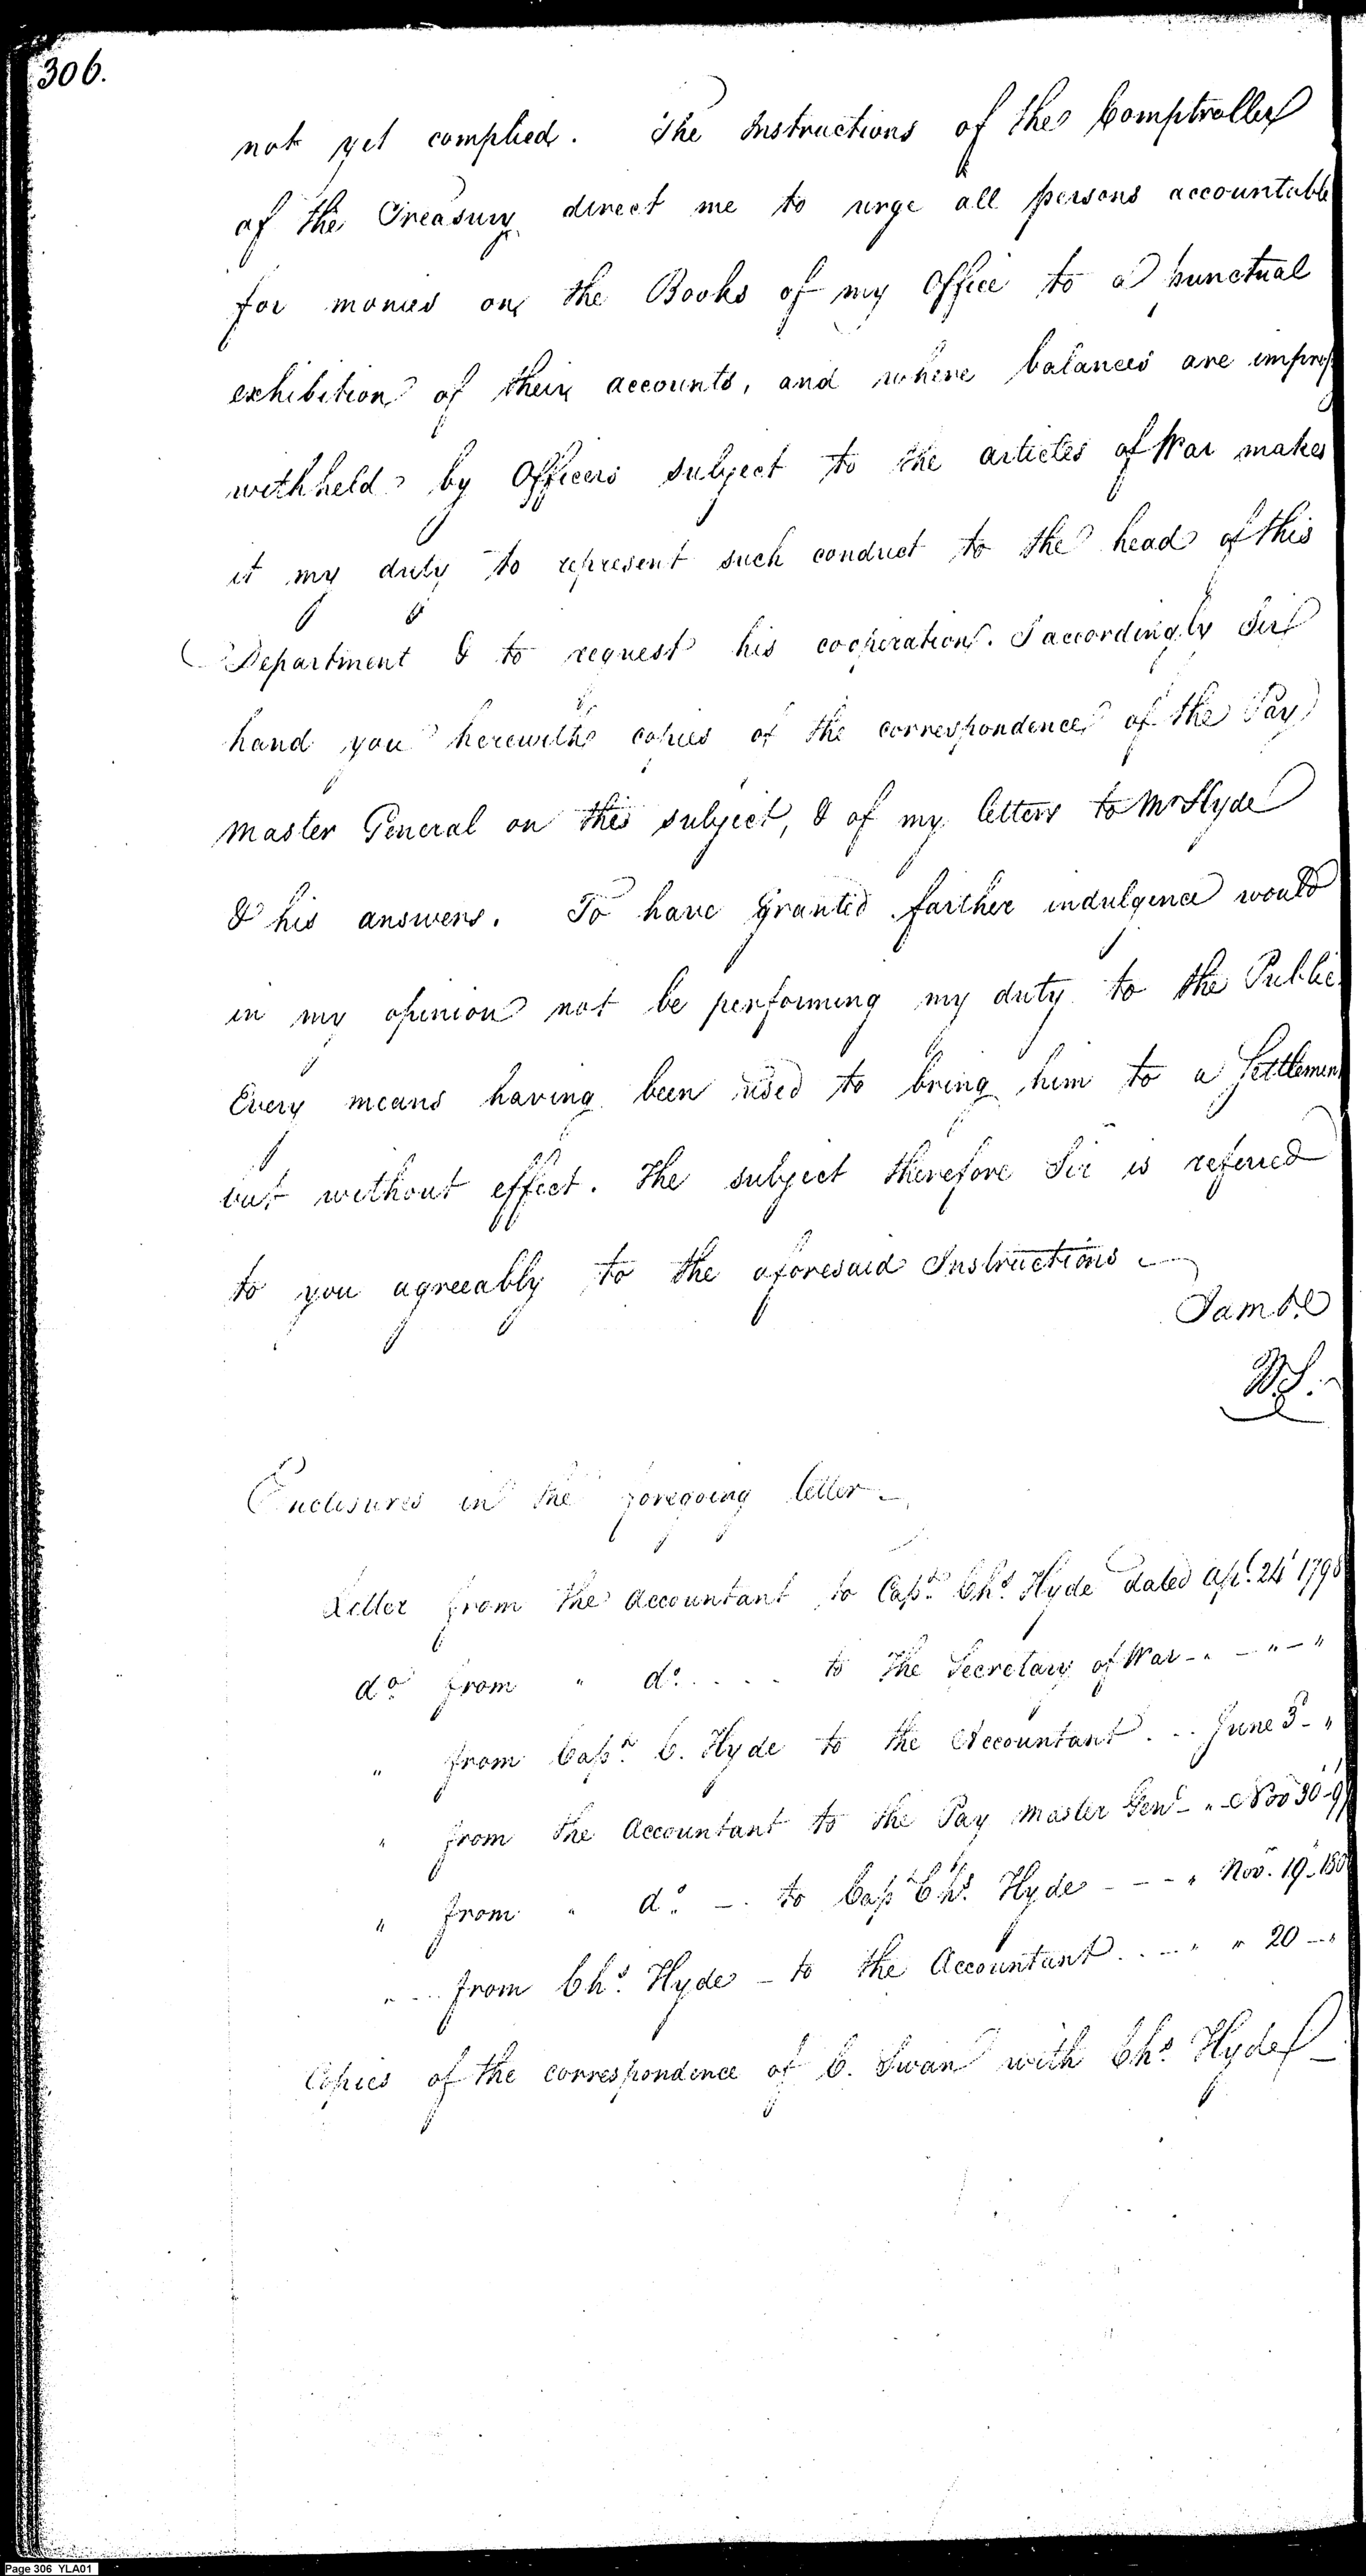 306.
not yet complied. The Instructions of the Comptroller
of the Treasury direct me to urge all persons accountable
for monies on the Books of my Office to a punctual
exhibition of their accounts, and where balances are
withheld by Officers subject to the articles of War makes
it my duty to represent such conduct to the head of this
Department & to request his cooperation. I accordingly Sir
hand you herewith copies of the correspondence of the Pay
Master General on this subject, & of my letters to Mr Hyde
& his answers. To have granted farther indulgence would
in my opinion not be performing my duty to the Public.
Every means having been used to bring him to a Settlement
but without effect. The subject therefore Sir is referred
to you agreeably to the aforesaid Instructions
I am &c
W.S.
Enclosures in the foregoing letter
Letter from the Accountant to Capn. Chs. Hyde dated Apl. 24 1798
do. from " do. . . . to the Secretary of War - " - " - "
" from Capn. C. Hyde to the Accountant . .. June 3 - "
" from the Accountant to the Pay Master Genl - " - Nov 30 - 9
" from " do. - . to Cap Chs. Hyde - - - " Nov. 19 - 180
" - from Chs. Hyde - to the Accountant . . - " " 20 - "
Copies of the correspondence of C. Swan with Chs. Hyde
Page 306 YLA01